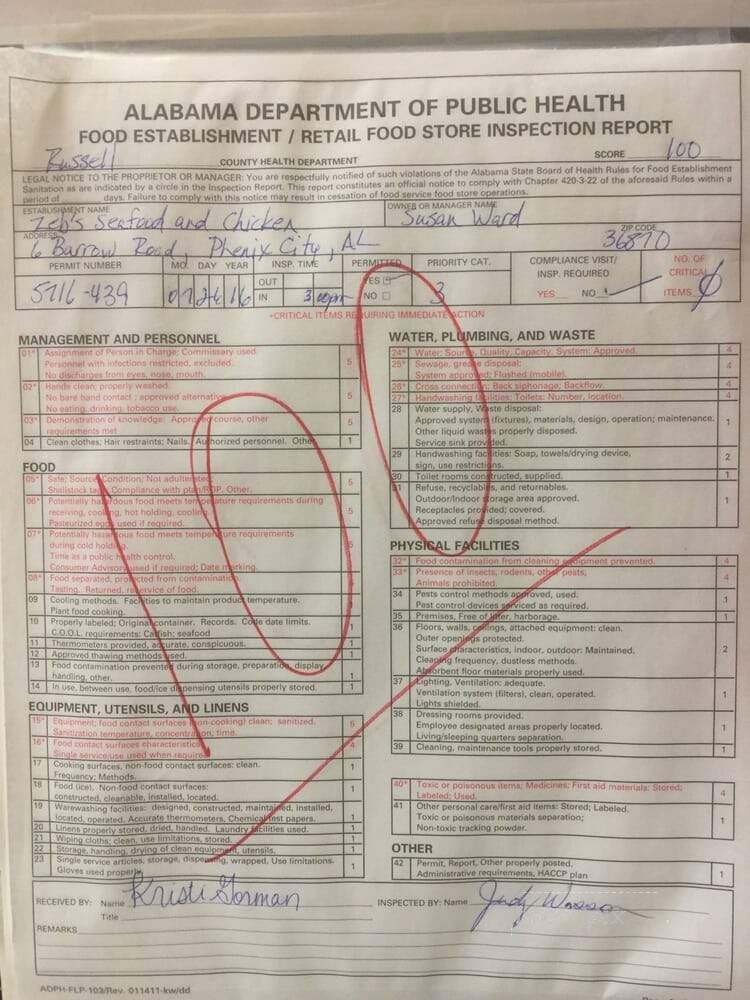 ALABAMA DEPARTMENT OF PUBLIC HEALTH
FOOD ESTABLISHMENT / RETAIL FOOD STORE INSPECTION REPORT
Russell COUNTY HEALTH DEPARTMENT SCORE 100
LEGAL NOTICE TO THE PROPRIETOR OR MANAGER: You are respectfully notified of such violations of the Alabama State Board of Health Rules for Food Establishment
Sanitation as are indicated by a circle in the Inspection Report. This report constitutes an official notice to comply with Chapter 420-3-22 of the aforesaid Rules within a
period of days. Failure to comply with this notice may result in cessation of food service food store operations.
ESTABLISHMENT NAME OWNER OR MANAGER NAME
Zeb's Seafood and Chicken Susan Ward
ADDRESS ZIP CODE
6 Barrow Road, Phenix City, AL 36870
PERMIT NUMBER MO. DAY YEAR INSP. TIME PERMITTED PRIORITY CAT. COMPLIANCE VISIT/ INSP. REQUIRED NO. OF CRITICAL ITEMS
5716-439 07 26 16 OUT YES 3 YES NO 0
IN 3:00pm NO
*CRITICAL ITEMS REQUIRING IMMEDIATE ACTION
MANAGEMENT AND PERSONNEL
01* Assignment of Person in Charge; Commissary used.
Personnel with infections restricted, excluded. 5
No discharges from eyes, nose, mouth.
02* Hands clean; properly washed.
No bare hand contact; approved alternative 5
No eating, drinking, tobacco use.
03* Demonstration of knowledge: Approved course, other 5
requirements met
04 Clean clothes; Hair restraints; Nails. Authorized personnel. Other 1
FOOD
05* Safe; Source; Condition; Not adulterated 5
Shellstock tags. Compliance with plan/ROP. Other.
06* Potentially hazardous food meets temperature requirements during
receiving, cooking, hot holding, cooling 5
Pasteurized eggs used if required.
07* Potentially hazardous food meets temperature requirements
during cold holding. 5
Time as a public health control.
Consumer Advisory used if required; Date marking.
08* Food separated, protected from contamination.
Tasting. Returned, reservice of food.
09 Cooling methods. Facilities to maintain product temperature.
Plant food cooking.
10 Properly labeled; Original container. Records. Code date limits. 1
C.O.O.L. requirements: Catfish; seafood
11 Thermometers provided, accurate, conspicuous. 1
12 Approved thawing methods used. 1
13 Food contamination prevented during storage, preparation, display, 1
handling, other.
14 In use, between use, food/ice dispensing utensils properly stored. 1
EQUIPMENT, UTENSILS, AND LINENS
15* Equipment; food contact surfaces (non-cooking) clean; sanitized. 5
Sanitization temperature, concentration, time.
16* Food contact surfaces characteristics 4
Single service/use used when required
17 Cooking surfaces, non-food contact surfaces: clean. 1
Frequency; Methods.
18 Food (ice), Non-food contact surfaces: 1
constructed, cleanable, installed, located.
19 Warewashing facilities: designed, constructed, maintained, installed,
located, operated. Accurate thermometers, Chemical test papers. 1
20 Linens properly stored, dried, handled. Laundry facilities used. 1
21 Wiping cloths; clean, use limitations, stored. 1
22 Storage, handling, drying of clean equipment, utensils. 1
23 Single service articles, storage, dispensing, wrapped, Use limitations. 1
Gloves used properly.
WATER, PLUMBING, AND WASTE
24* Water: Source, Quality, Capacity. System: Approved. 4
25* Sewage, grease disposal: 4
System approved; Flushed (mobile).
26* Cross connection; Back siphonage; Backflow. 4
27* Handwashing facilities; Toilets: Number, location. 4
28 Water supply, Waste disposal:
Approved system (fixtures), materials, design, operation; maintenance. 1
Other liquid wastes properly disposed.
Service sink provided.
29 Handwashing facilities: Soap, towels/drying device, 2
sign, use restrictions.
30 Toilet rooms constructed, supplied. 1
31 Refuse, recyclables, and returnables.
Outdoor/Indoor storage area approved. 1
Receptacles provided; covered.
Approved refuse disposal method.
PHYSICAL FACILITIES
32* Food contamination from cleaning equipment prevented. 4
33* Presence of insects, rodents, other pests, 4
Animals prohibited.
34 Pests control methods approved, used. 1
Pest control devices serviced as required.
35 Premises, Free of litter, harborage. 1
36 Floors, walls, ceilings, attached equipment: clean.
Outer openings protected.
Surface characteristics, indoor, outdoor: Maintained. 2
Cleaning frequency, dustless methods.
Absorbent floor materials properly used.
37 Lighting. Ventilation: adequate.
Ventilation system (filters), clean, operated. 1
Lights shielded.
38 Dressing rooms provided.
Employee designated areas properly located. 1
Living/sleeping quarters separation.
39 Cleaning, maintenance tools properly stored. 1
40* Toxic or poisonous items; Medicines; First aid materials: Stored; 4
Labeled; Used.
41 Other personal care/first aid items: Stored; Labeled.
Toxic or poisonous materials separation; 1
Non-toxic tracking powder.
OTHER
42 Permit, Report, Other properly posted. 1
Administrative requirements, HACCP plan
RECEIVED BY: Name Kristi Gorman INSPECTED BY: Name Judy
Title
REMARKS
ADPH-FLP-103/Rev. 011411-kw/dd
100